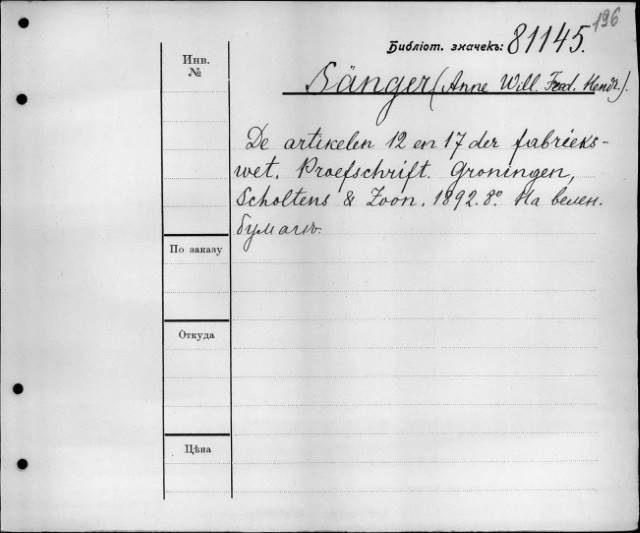 196
Библіот. значекъ: 81145.
Инв.
№
Sänger (Anne Will. Fred. Hendr.).
De artikelen 12 en 17 der fabrieks-
wet. Proefschrift. Groningen,
Scholtens & Zoon. 1892. 8º. На велен.
бумагѣ.
По заказу
Откуда
Цѣна